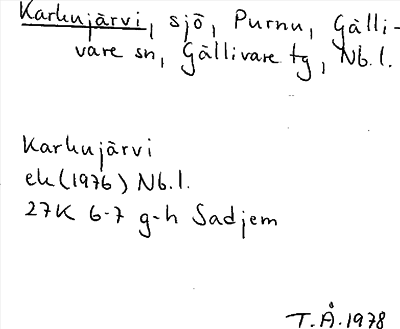 Karhujärvi, sjö, Purnu, Gälli-
vare sn, Gällivare tg, Nb.l.
Karhujärvi
ek (1976) Nb.l.
27K 6-7 g-h Sadjem
T.Å. 1978